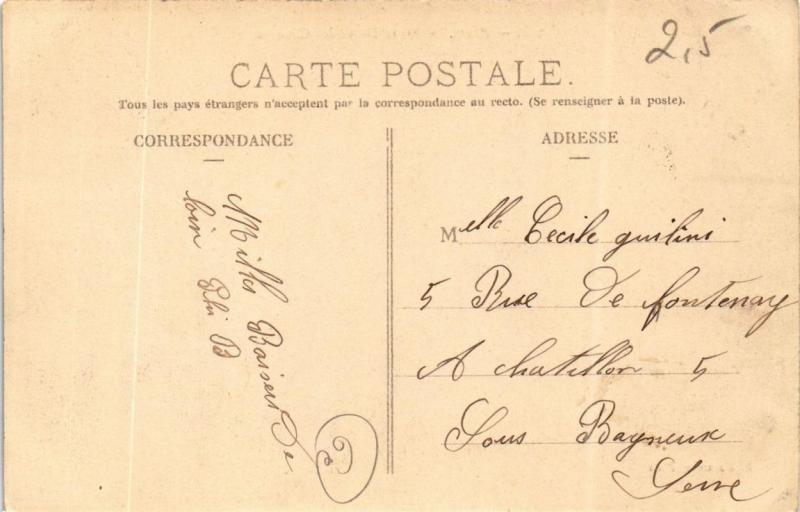 2,5
CARTE POSTALE.
Tous les pays étrangers n'acceptent par la correspondance au recto. (Se renseigner à la poste).
CORRESPONDANCE
Mills Baisers De
loin
B
ADRESSE
Melle Cecile guilini
5 Rue De fontenay
A chatillon 5
Sous Bagneux
Seine